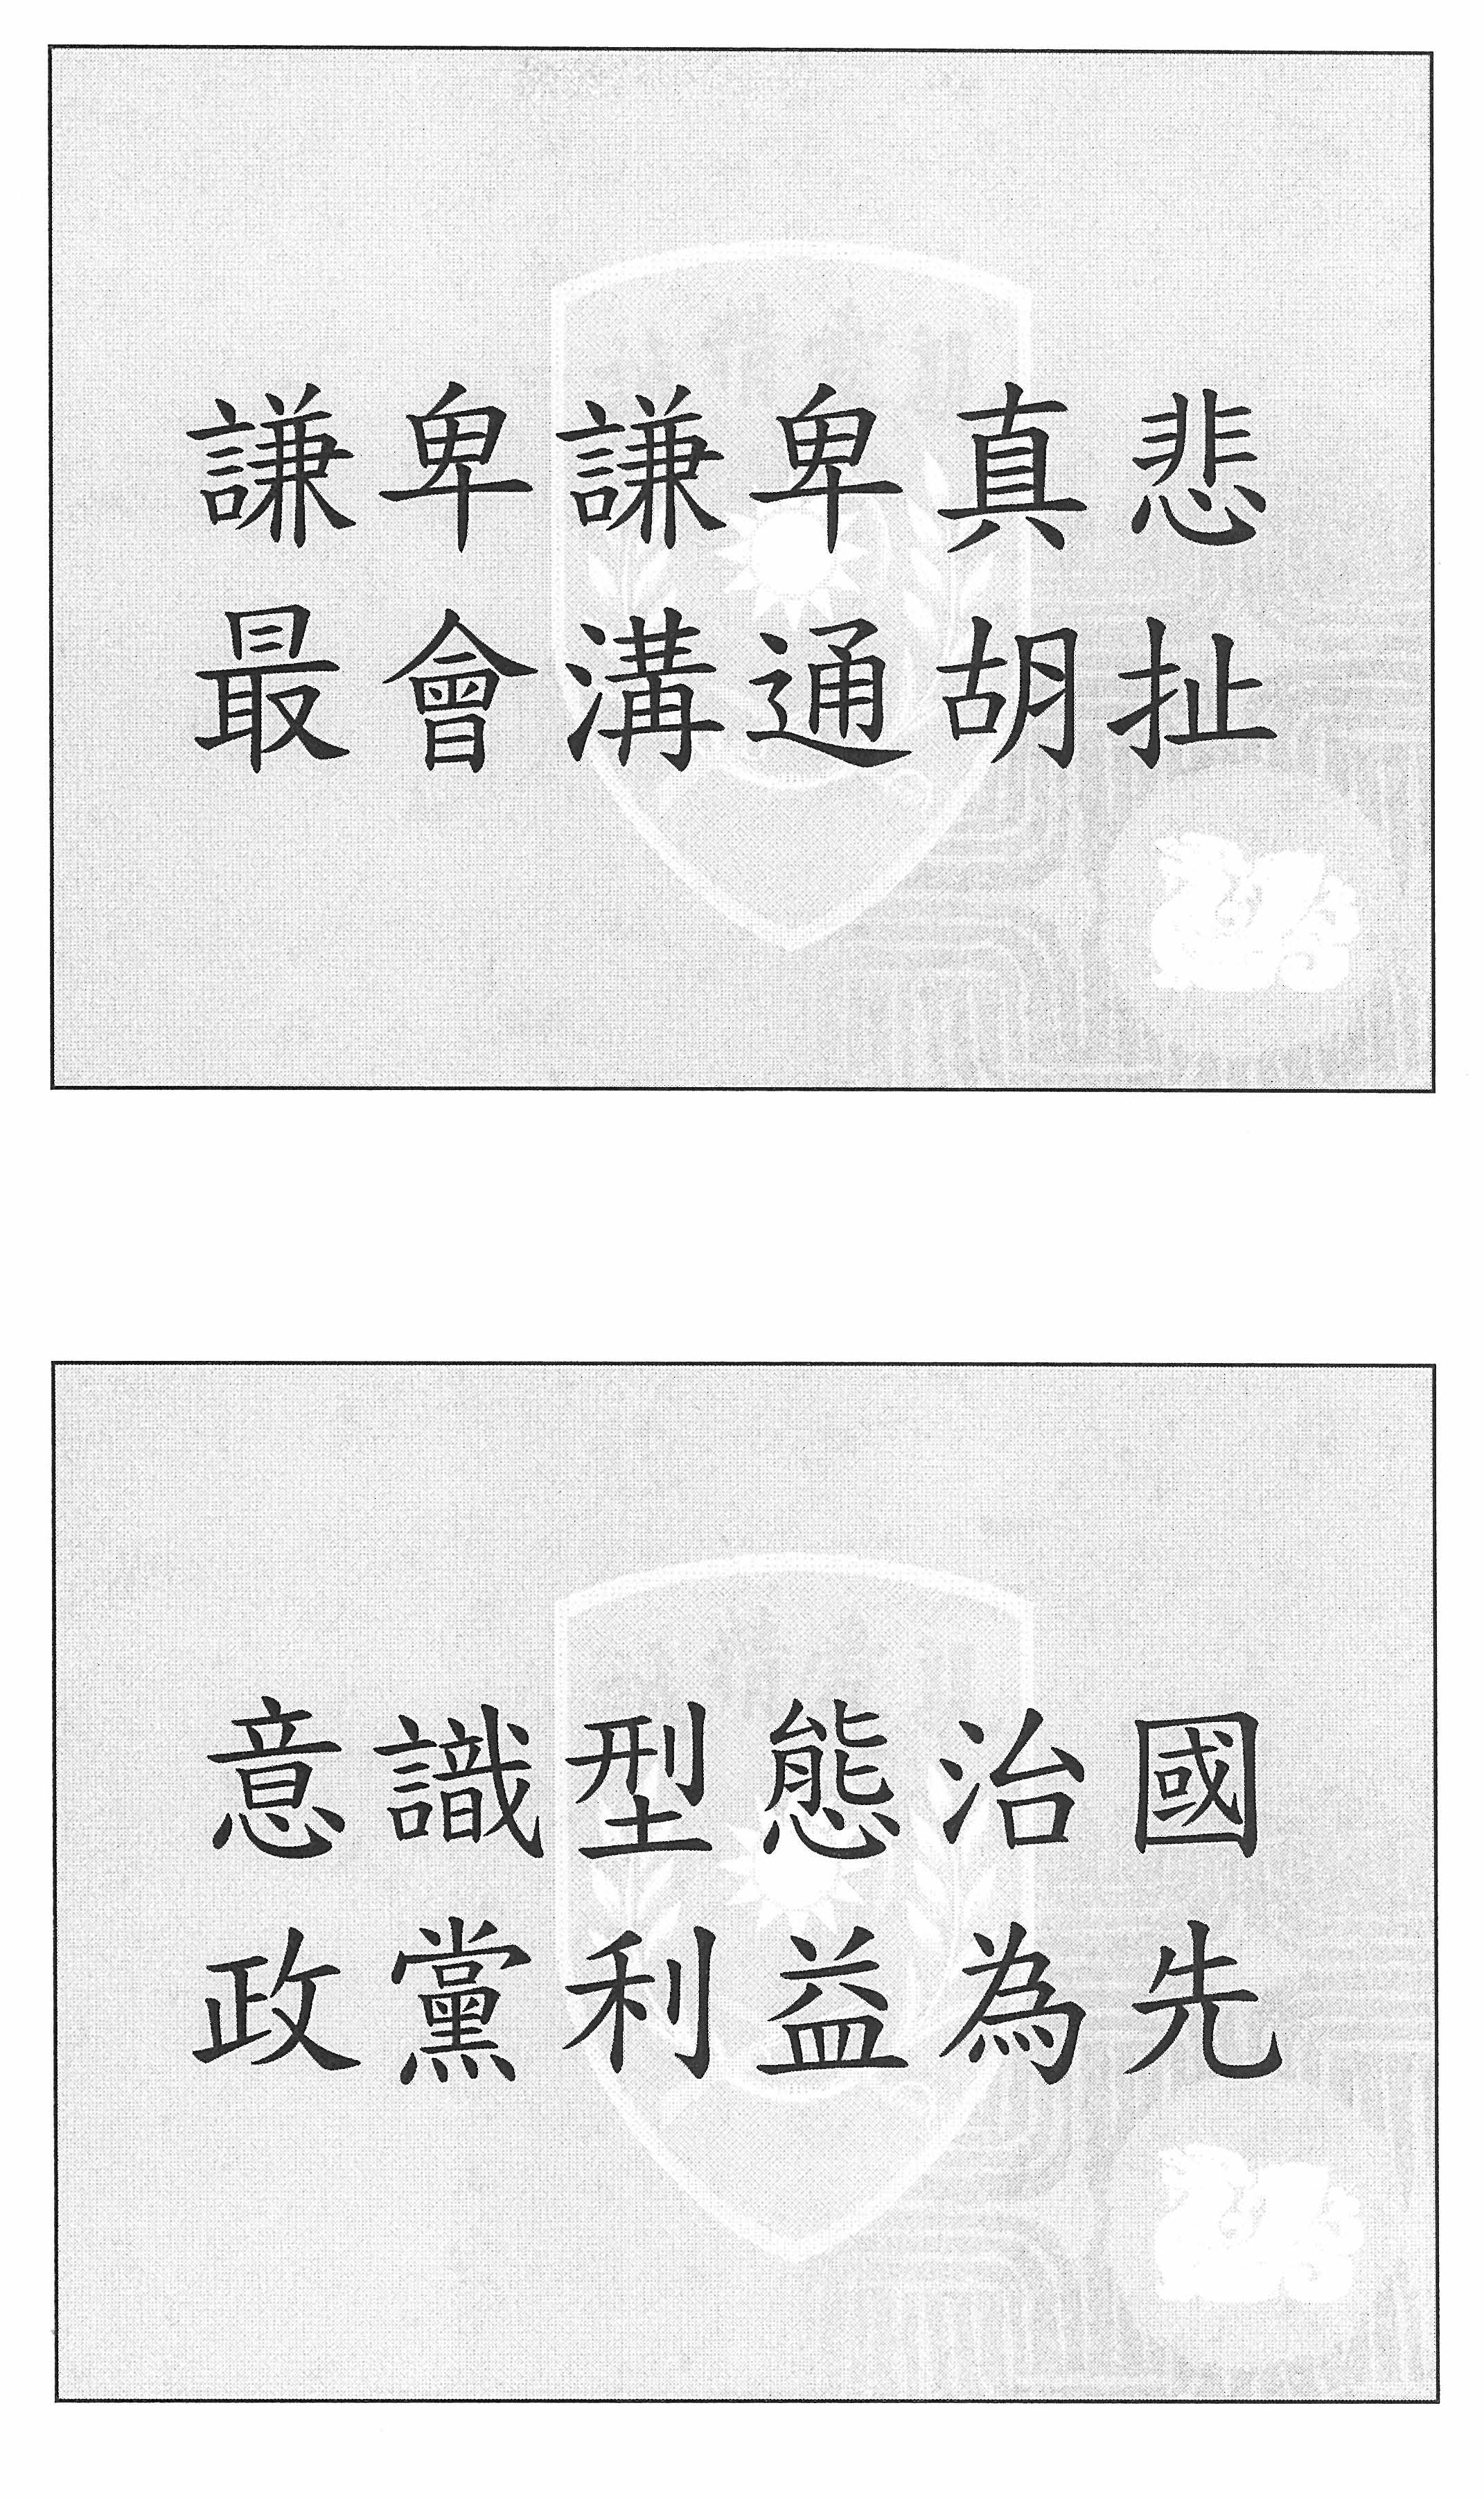 謙卑謙卑真悲
最會溝通胡扯
意識型態治國
政黨利益為先